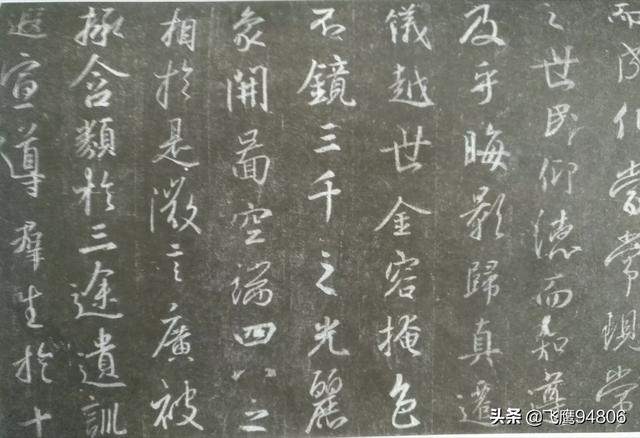 而成化當常現常
之世民仰德而知遵
及乎晦影歸真遷
儀越世金容掩色
不鏡三千之光麗
象開圖空端四八之
相於是微言廣被
拯含類於三途遺訓
遐宣導羣生於十
头条 @飞鹰94806